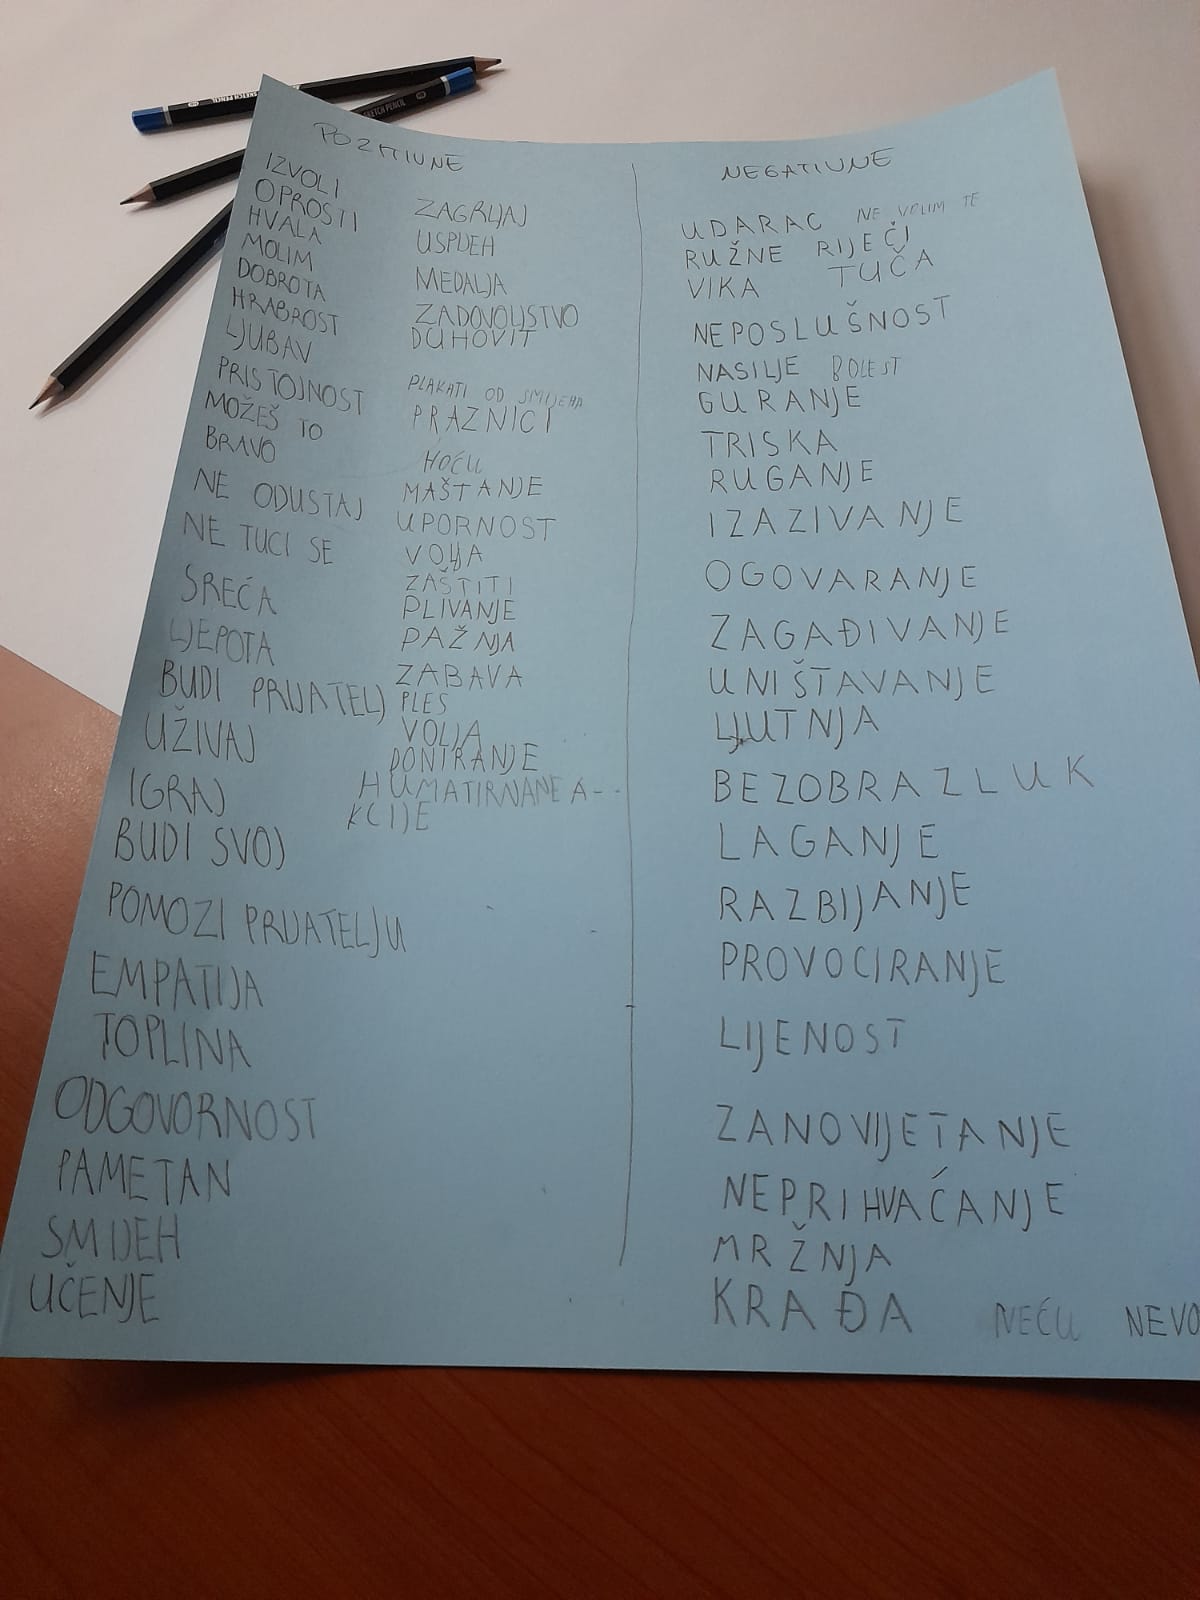 SKETCH PENCIL
SKETCH PENCIL
POZITIVNE
IZVOLI
OPROSTI
HVALA
MOLIM
DOBROTA
HRABROST
LJUBAV
PRISTOJNOST
MOŽEŠ TO
BRAVO
NE ODUSTAJ
NE TUCI SE
SREĆA
LJEPOTA
BUDI PRIJATELJ
UŽIVAJ
IGRAJ
BUDI SVOJ
POMOZI PRIJATELJU
EMPATIJA
TOPLINA
ODGOVORNOST
PAMETAN
SMIJEH
UČENJE
ZAGRLJAJ
USPIJEH
MEDALJA
ZADOVOLJSTVO
DUHOVIT
PLAKATI OD SMIJEHA
PRAZNICI
HOĆU
MAŠTANJE
UPORNOST
VOLJA
ZAŠTITI
PLIVANJE
PAŽNJA
ZABAVA
PLES
VOLJA
DONIRANJE
HUMATIRNANE A--
KCIJE
NEGATIVNE
UDARAC NE VOLIM TE
RUŽNE RIJEČI
VIKA TUČA
NEPOSLUŠNOST
NASILJE BOLEST
GURANJE
TRISKA
RUGANJE
IZAZIVANJE
OGOVARANJE
ZAGAĐIVANJE
UNIŠTAVANJE
LJUTNJA
BEZOBRAZLUK
LAGANJE
RAZBIJANJE
PROVOCIRANJE
LIJENOST
ZANOVIJETANJE
NEPRIHVAĆANJE
MRŽNJA
KRAĐA NEĆU NEVO